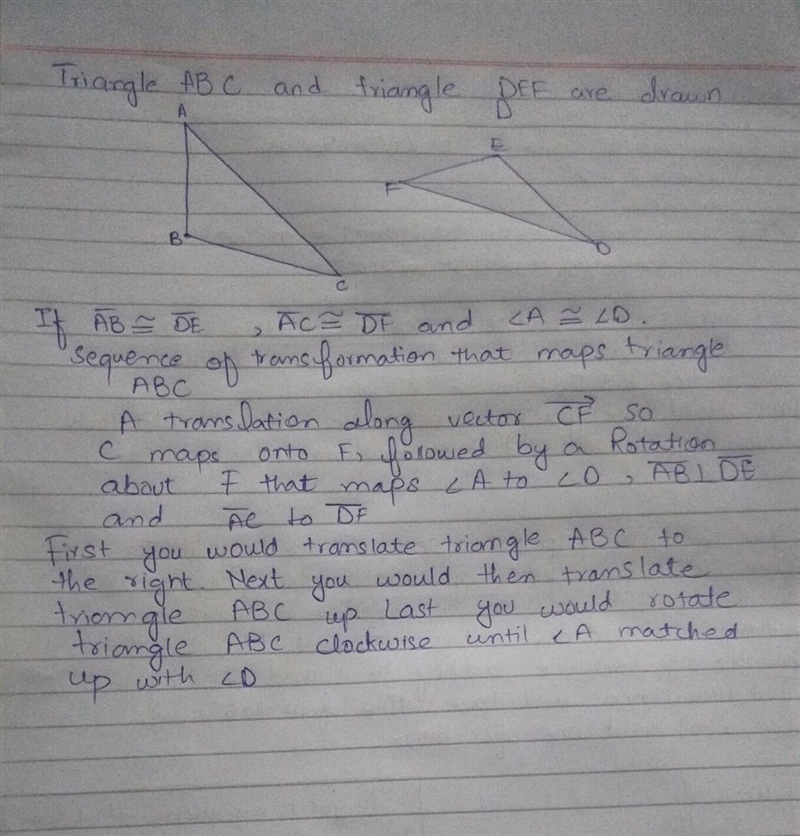 Triangle ABC and triangle DEF are drawn
D
A
E
F
B
D
C
If AB ≅ DE , AC ≅ DF and ∠A ≅ ∠D.
sequence of transformation that maps triangle
ABC
A translation along vector CF so
C maps onto F, followed by a Rotation
about F that maps ∠A to ∠D, AB ⊥ DE
and AC to DF
First you would translate triangle ABC to
the right. Next you would then translate
triangle ABC up Last you would rotate
triangle ABC clockwise until ∠A matched
up with ∠D